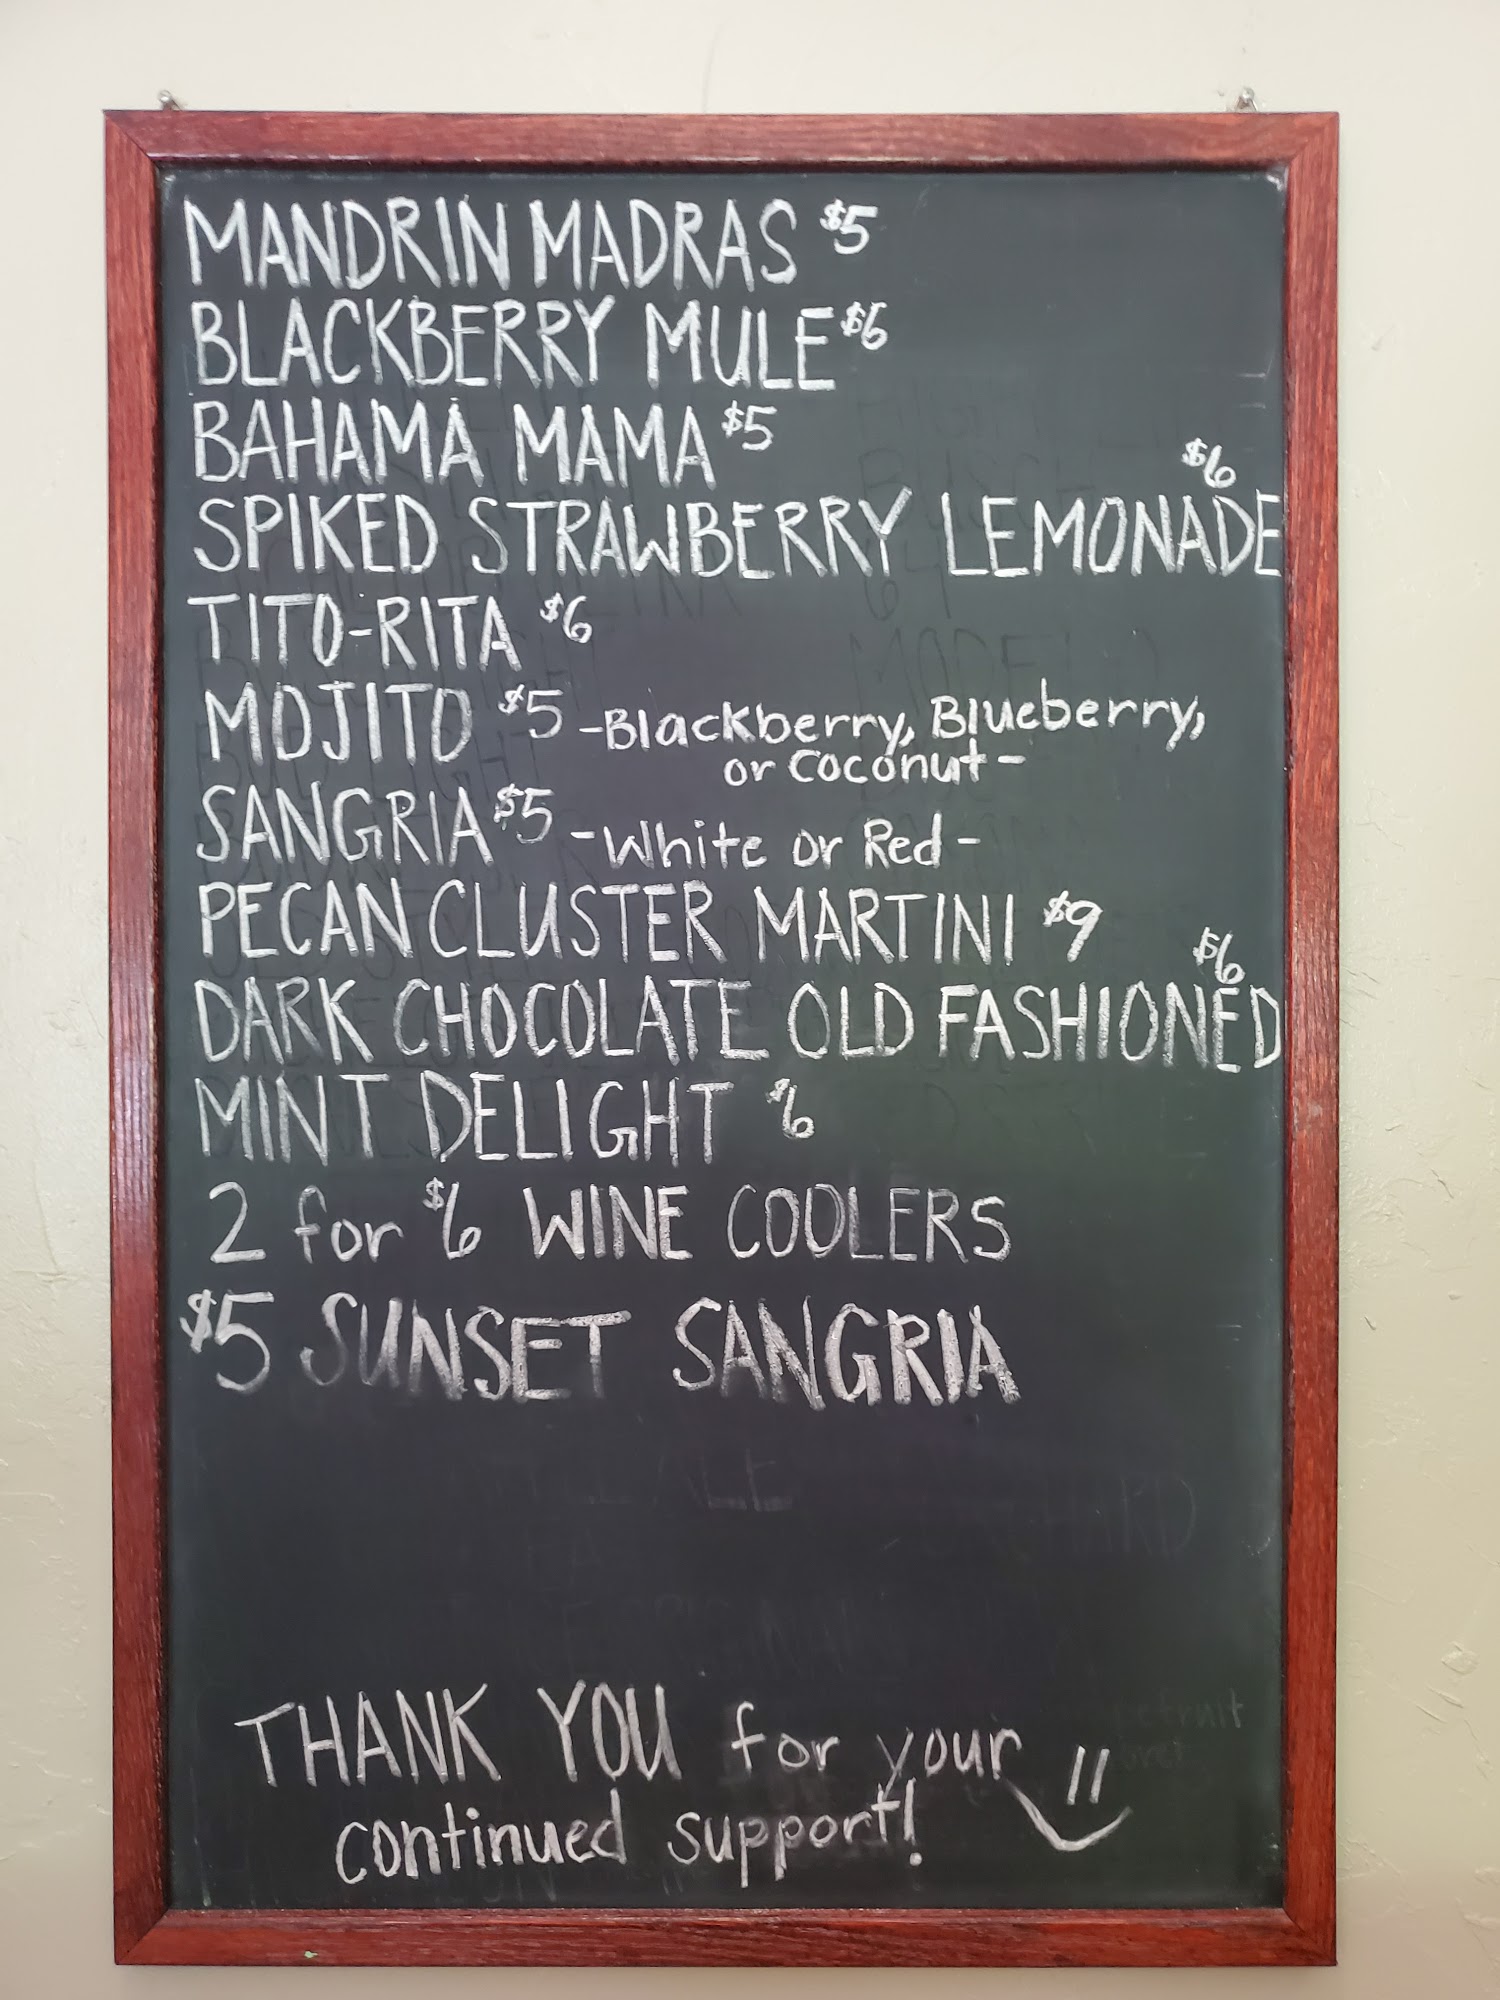 MANDRIN MADRAS $5
BLACKBERRY MULE $6
BAHAMA MAMA $5
SPIKED STRAWBERRY LEMONADE $6
TITO-RITA $6
MOJITO $5 -Blackberry, Blueberry,
or Coconut-
SANGRIA $5 -White or Red-
PECAN CLUSTER MARTINI $9
DARK CHOCOLATE OLD FASHIONED $6
MINT DELIGHT $6
2 for $6 WINE COOLERS
$5 SUNSET SANGRIA
THANK YOU for your
continued support!